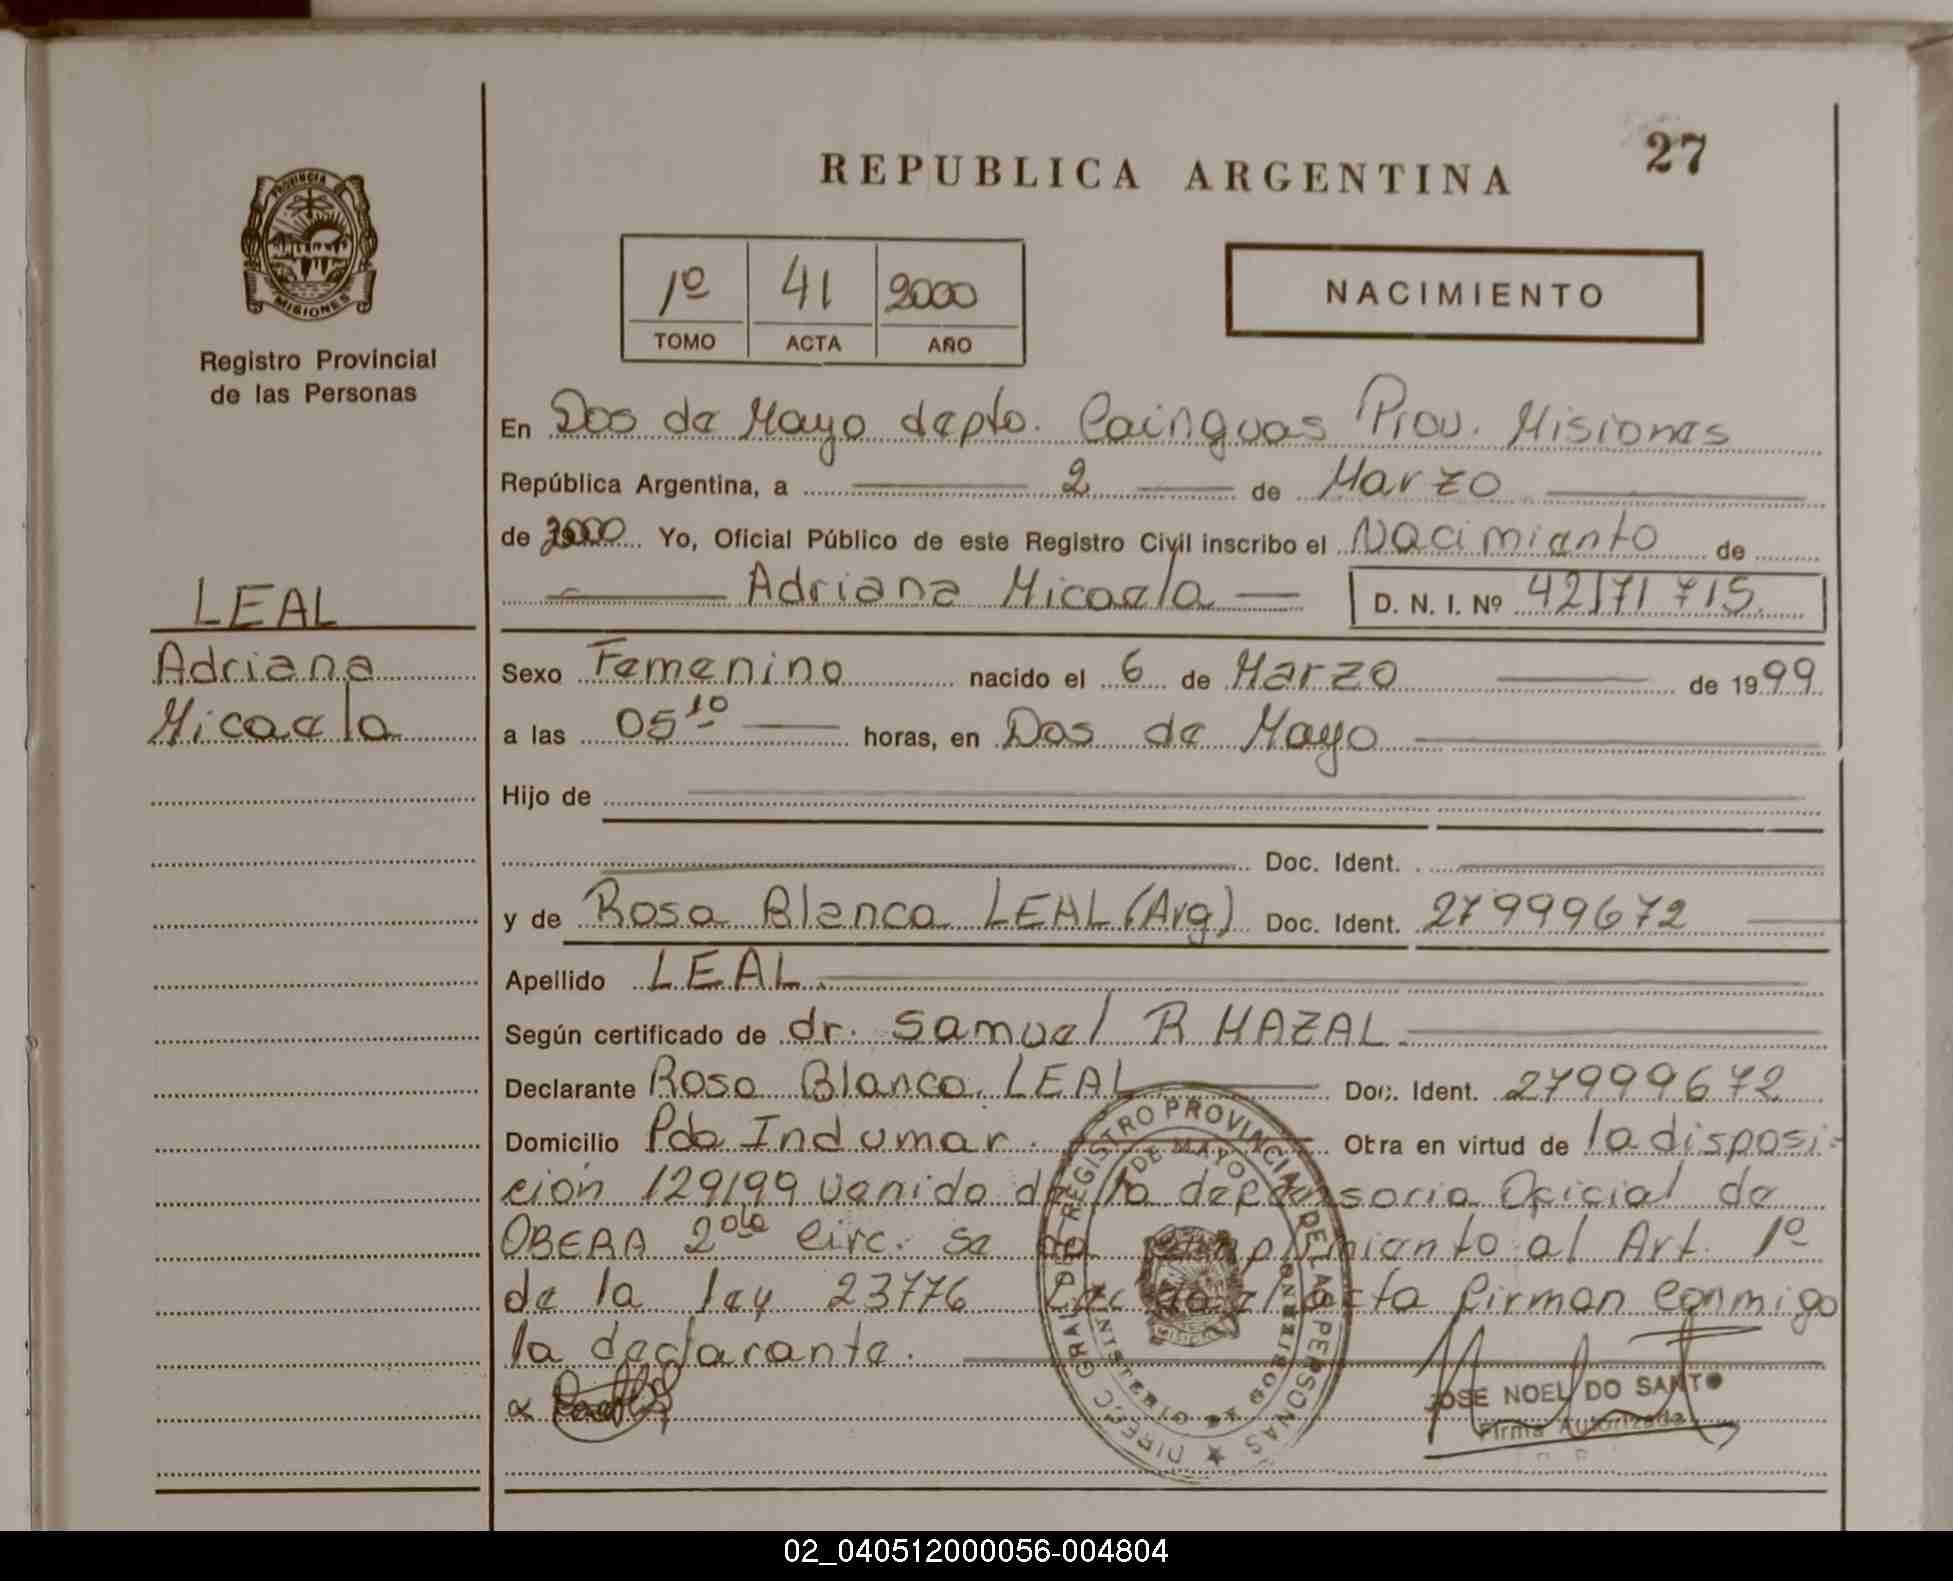 27
REPUBLICA ARGENTINA
PROVINCIA
MISIONES
Registro Provincial
de las Personas
1º 41 2000
TOMO ACTA AÑO
NACIMIENTO
En Dos de Mayo depto. Cainguas Prov. Misiones
República Argentina, a 2 de Marzo
de 2000 Yo, Oficial Público de este Registro Civil inscribo el Nacimiento de
Adriana Micaela D. N. I. Nº 42171715
LEAL
Adriana
Micaela
Sexo Femenino nacido el 6 de Marzo de 1999
a las 05 10 horas, en Dos de Mayo
Hijo de
Doc. Ident.
y de Rosa Blanca LEAL (Arg) Doc. Ident. 27999672
Apellido LEAL
Según certificado de dr. Samuel R MAZAL
Declarante Rosa Blanca LEAL Doc. Ident. 27999672
Domicilio Pdo Indumar. Otra en virtud de la disposi-
ción 129/99 venido de la defensoria Oficial de
OBERA 2da Circ. se da cumplimiento al Art. 1º
de la ley 23776 Leida el acta firman conmigo
la declarante.
DIRECC. GRAL. DE REGISTRO PROVINCIAL DE LAS PERSONAS
DE MAYO
JOSE NOEL DO SANTO
Firma Autorizada
02_040512000056-004804